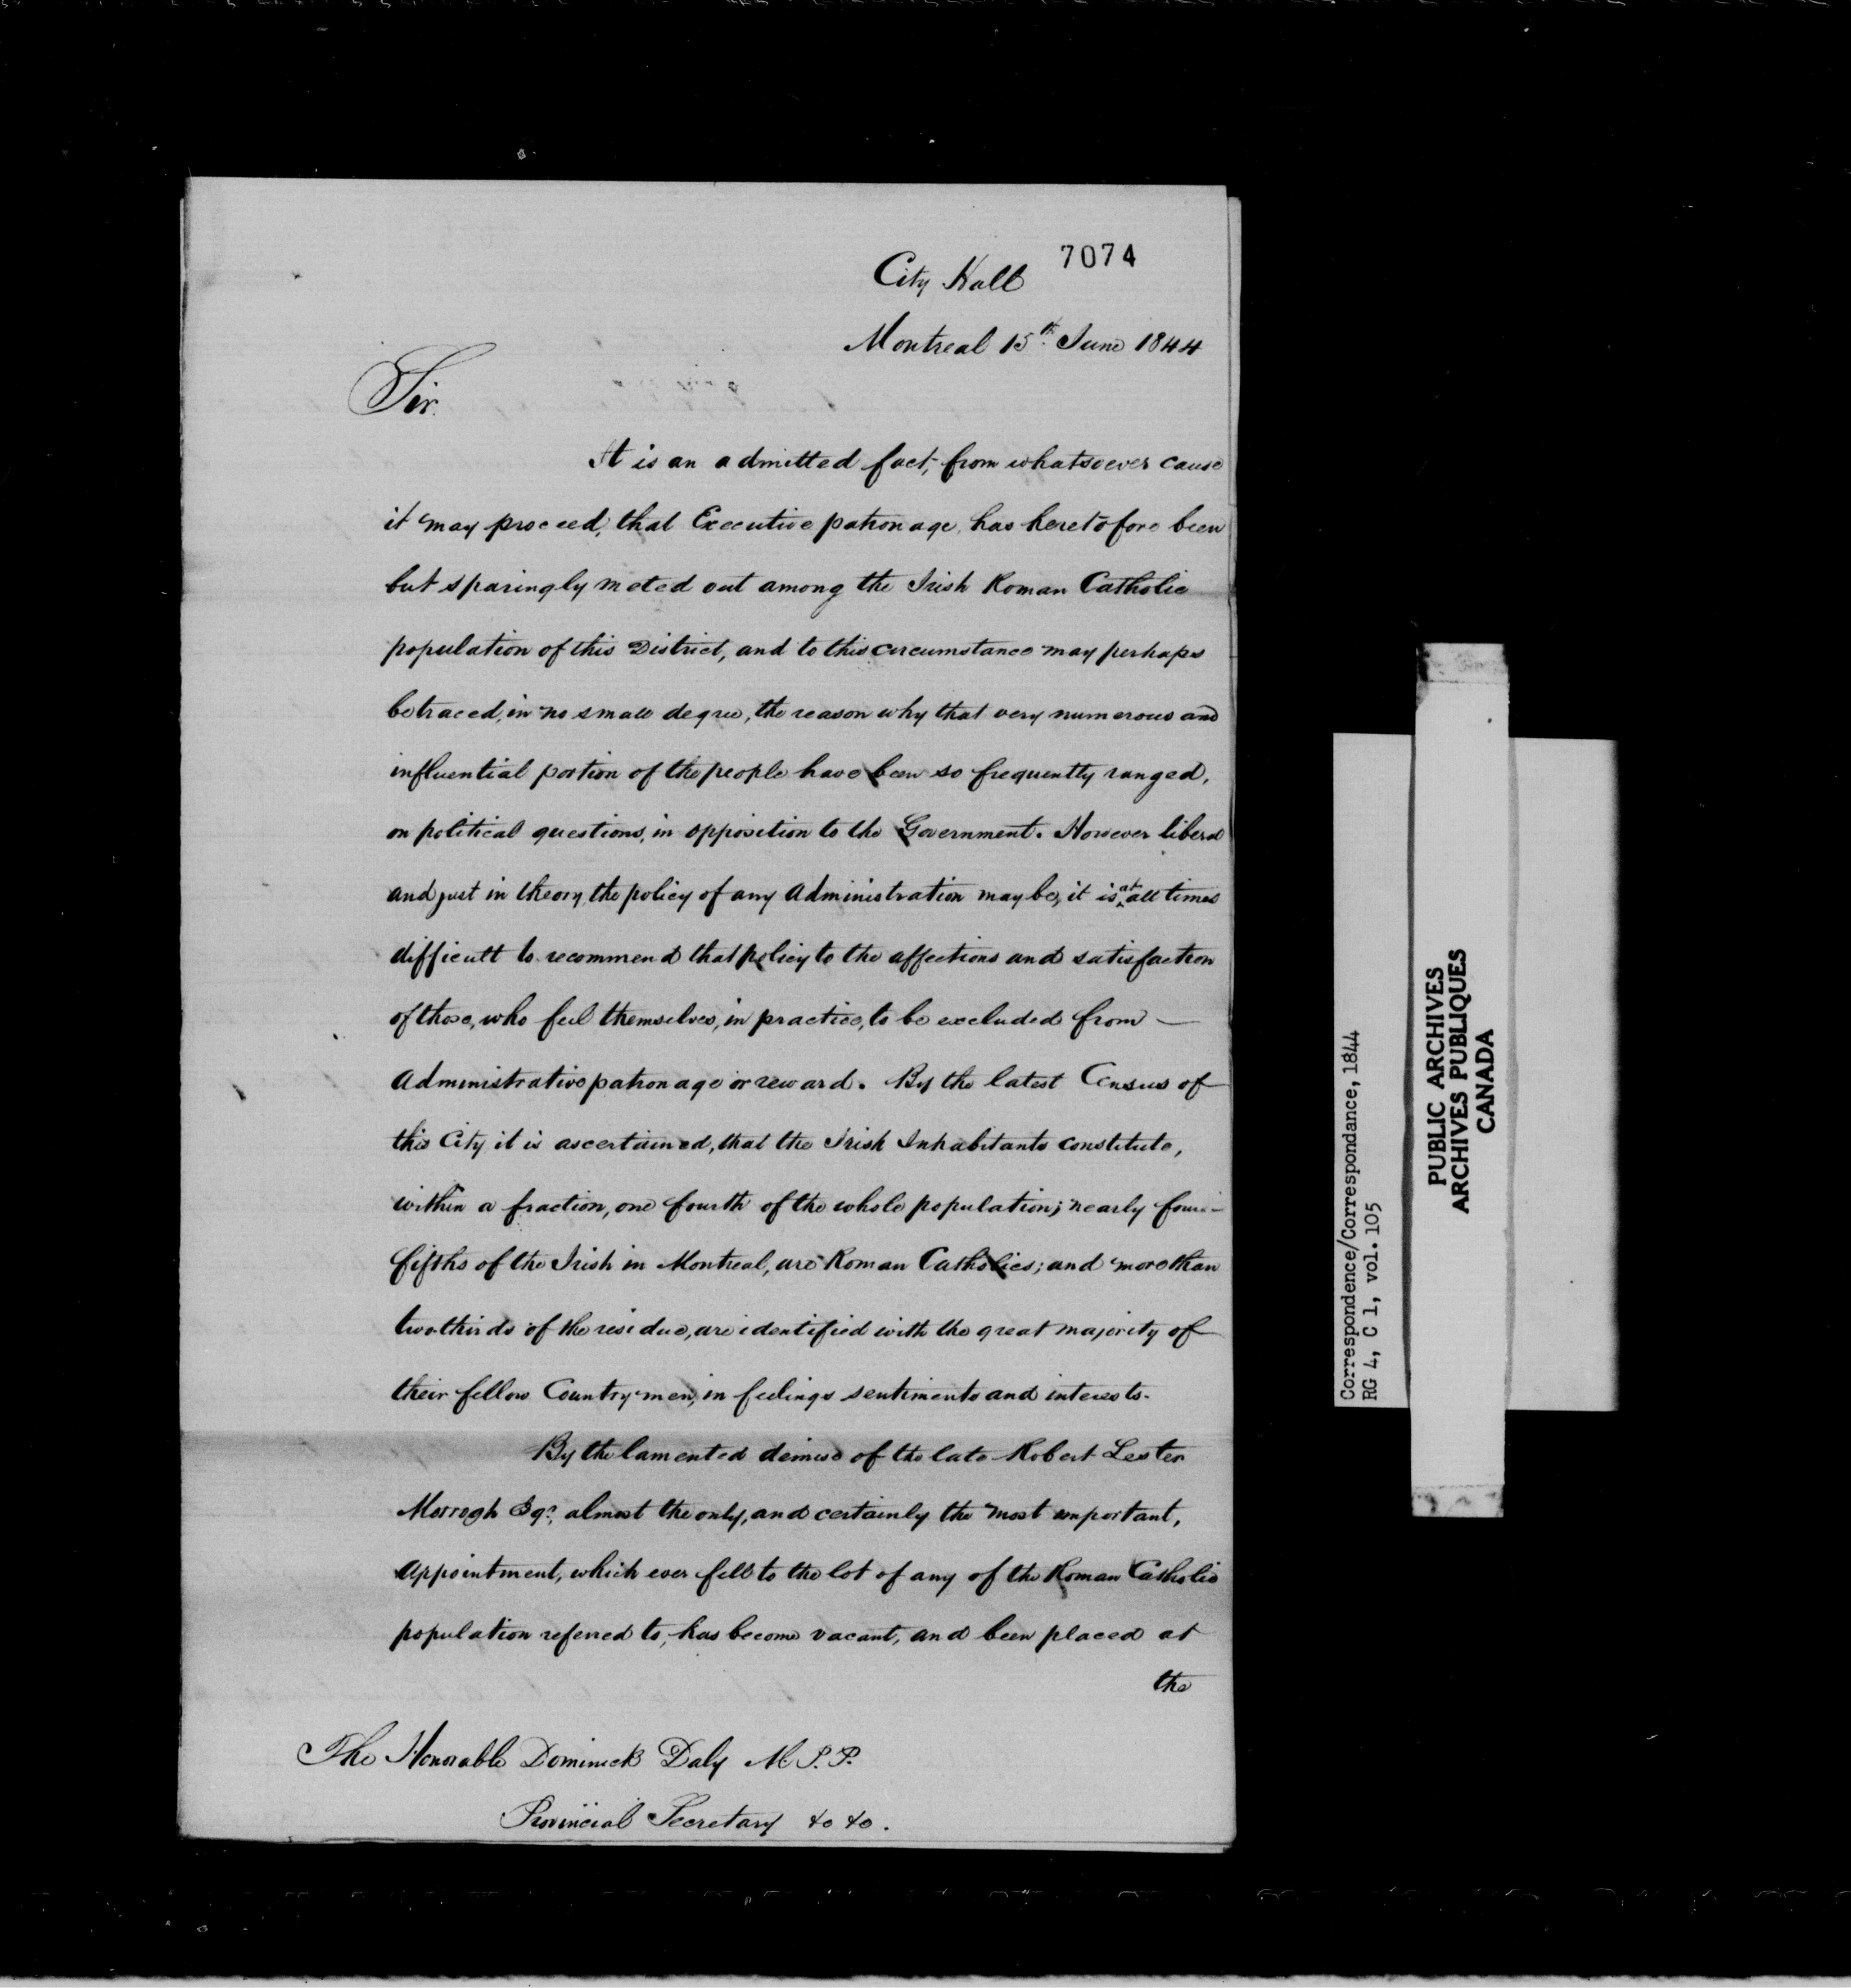 7074
City Hall
Montreal 15th. June 1844
Sir.
It is an admitted fact, from whatsoever cause
it may proceed, that Executive patronage, has heretofore been
but sparingly meted out among the Irish Roman Catholic
population of this District, and to this circumstance may perhaps
be traced, in no small degree, the reason why that very numerous and
influential portion of the people have been so frequently ranged,
on political questions, in opposition to the Government. However liberal
and just in theory, the policy of any Administration may be, it is at all times
difficult to recommend that policy to the affections and satisfaction
of those, who feel themselves, in practice, to be excluded from —
Administrative patronage or reward. By the latest Census of
this City it is ascertained, that the Irish Inhabitants constitute,
within a fraction, one fourth of the whole population; nearly four-
fifths of the Irish in Montreal, are Roman Catholics; and more than
two thirds of the residue, are identified with the great majority of
their fellow Countrymen, in feelings sentiments and interests.
By the lamented demise of the late Robert Lester
Morrogh Esqr. almost the only, and certainly the most important,
Appointment, which ever fell to the lot of any of the Roman Catholic
population referred to, has become vacant, and been placed at
the
The Honorable Dominick Daly M.P.P.
Provincial Secretary &c &c.
Correspondence/Correspondance, 1844
RG 4, C 1, vol. 105
PUBLIC ARCHIVES
ARCHIVES PUBLIQUES
CANADA